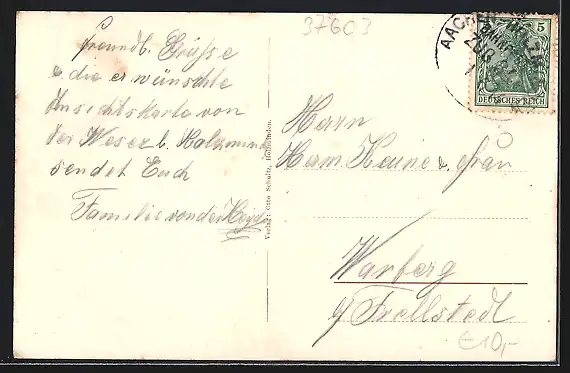 37603
freundl. Grüsse
& die erwünschte
Ansichtskarte von
der Weser b. Holzmind
sendet Euch
Familie von der Heyde
Verlag: Otto Schultz, Holzminden.
AACHEN
BAHNPOST
ZUG
5
DEUTSCHES REICH
Herrn
Ham Keune & Frau
Warberg
b/ Frellstedt
€10,-